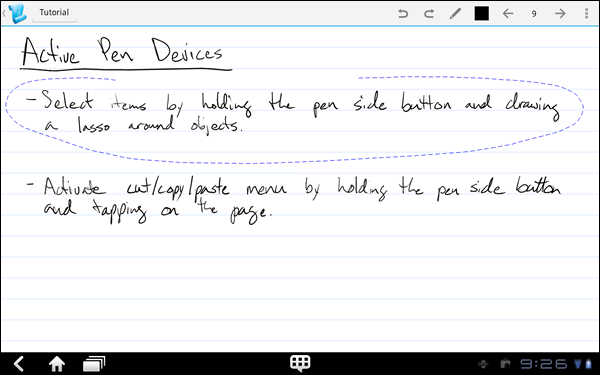 Tutorial
9
Active Pen Devices
- Select items by holding the pen side button and drawing
a lasso around objects.
- Activate cut/copy/paste menu by holding the pen side button
and tapping on the page.
9:26